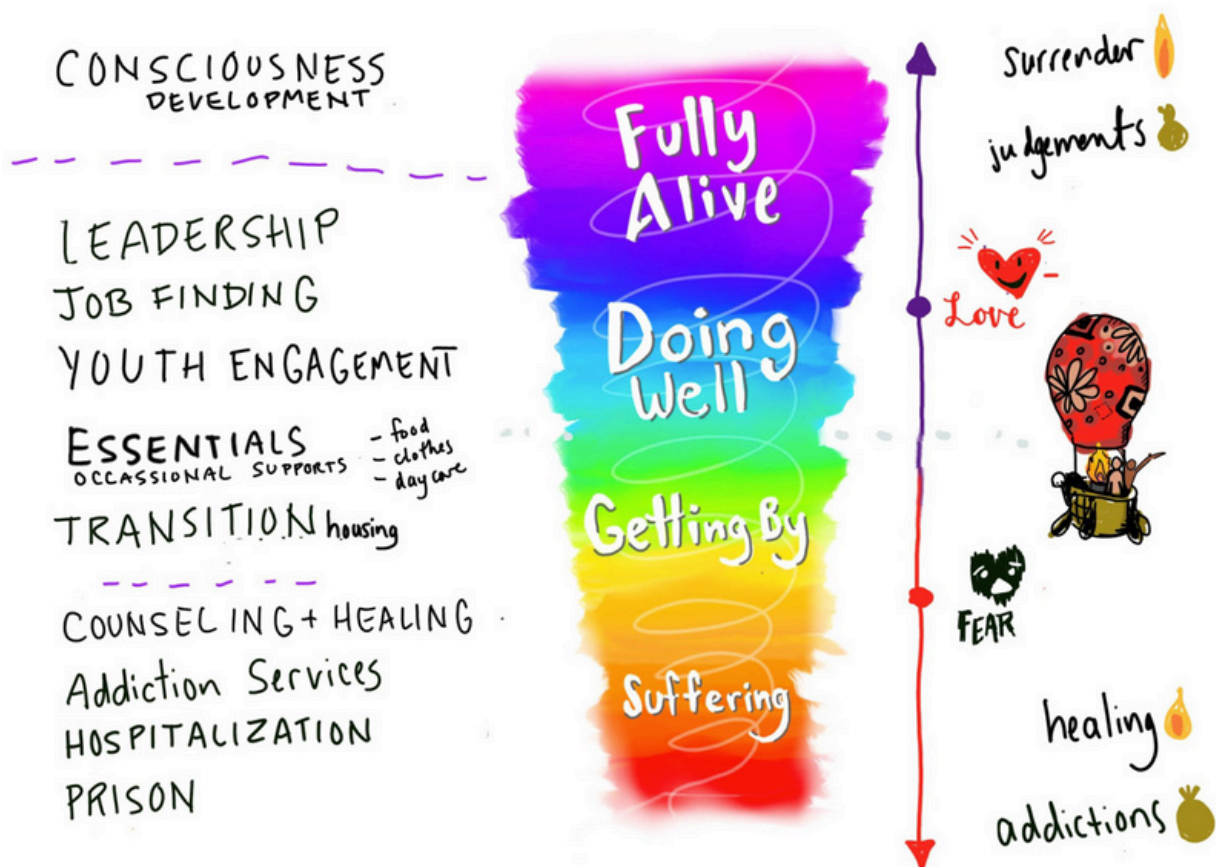 CONSCIOUSNESS
DEVELOPMENT
LEADERSHIP
JOB FINDING
YOUTH ENGAGEMENT
ESSENTIALS
OCCASSIONAL SUPPORTS
- food
- clothes
- day care
TRANSITION housing
COUNSELING + HEALING
Addiction Services
HOSPITALIZATION
PRISON
Fully
Alive
Doing
Well
Getting By
Suffering
surrender
judgements
Love
FEAR
healing
addictions